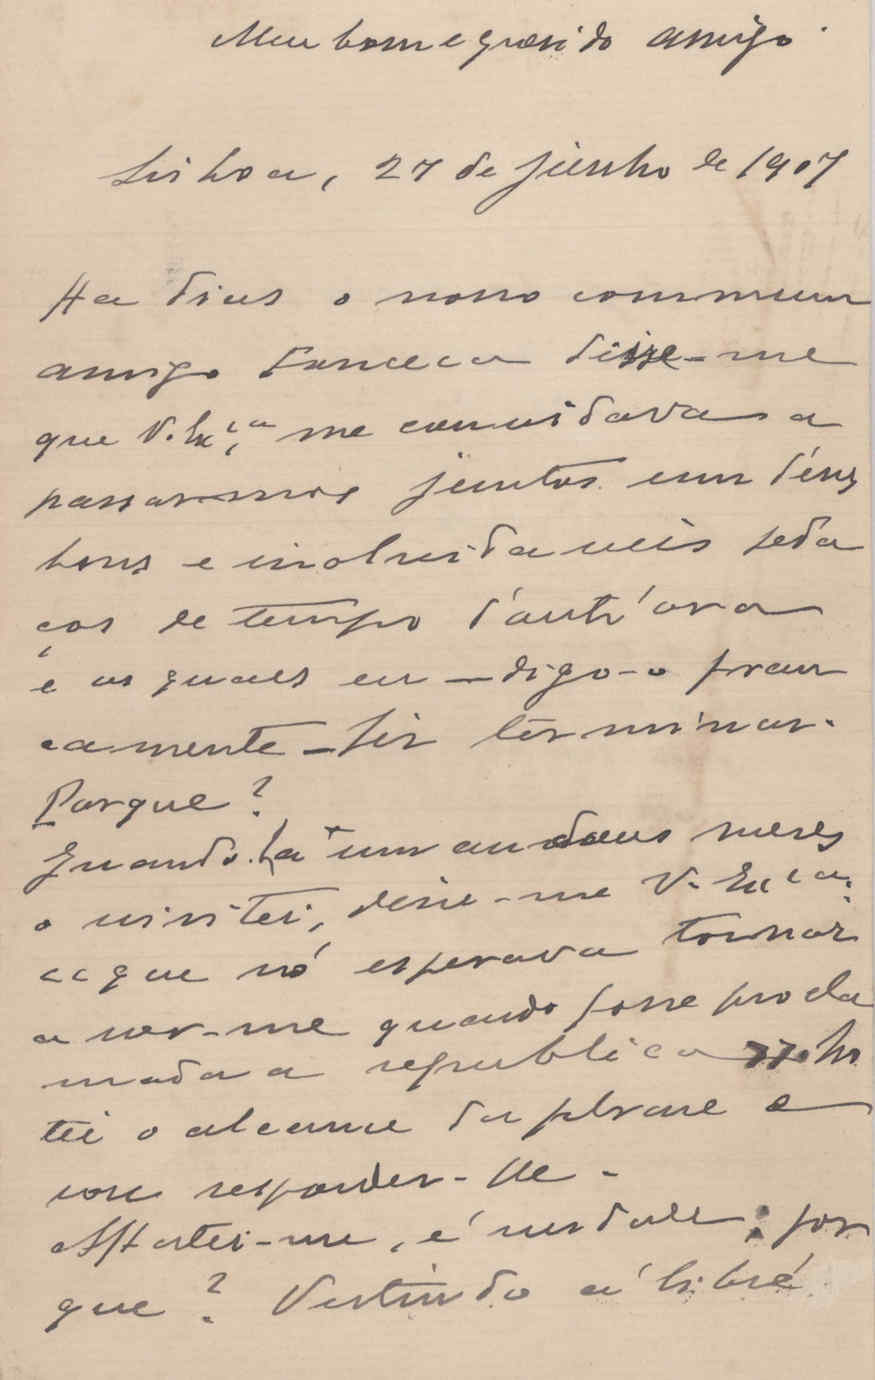 Meu bom e querido amigo.
Lisboa, 27 de junho de 1907
Ha dias o nosso commum
amigo Fonceca disse-me
que V. Ex.cia me convidava a
passarmos juntos um d'eses
bons e inolvidaveis peda
ços de tempo d'outr'ora
e os quaes eu - digo-o fran
camente - fiz terminar.
Porque?
Quando ha um anno e meses
o visitei, disse-me V. Ex.cia:
"que só esperava tornar
a ver-me quando fosse procla
mada a republica". No
tei o alcance da phrase e
vou responder-lhe.
Affastei-me, é verdade; por
que? Vestindo a libré